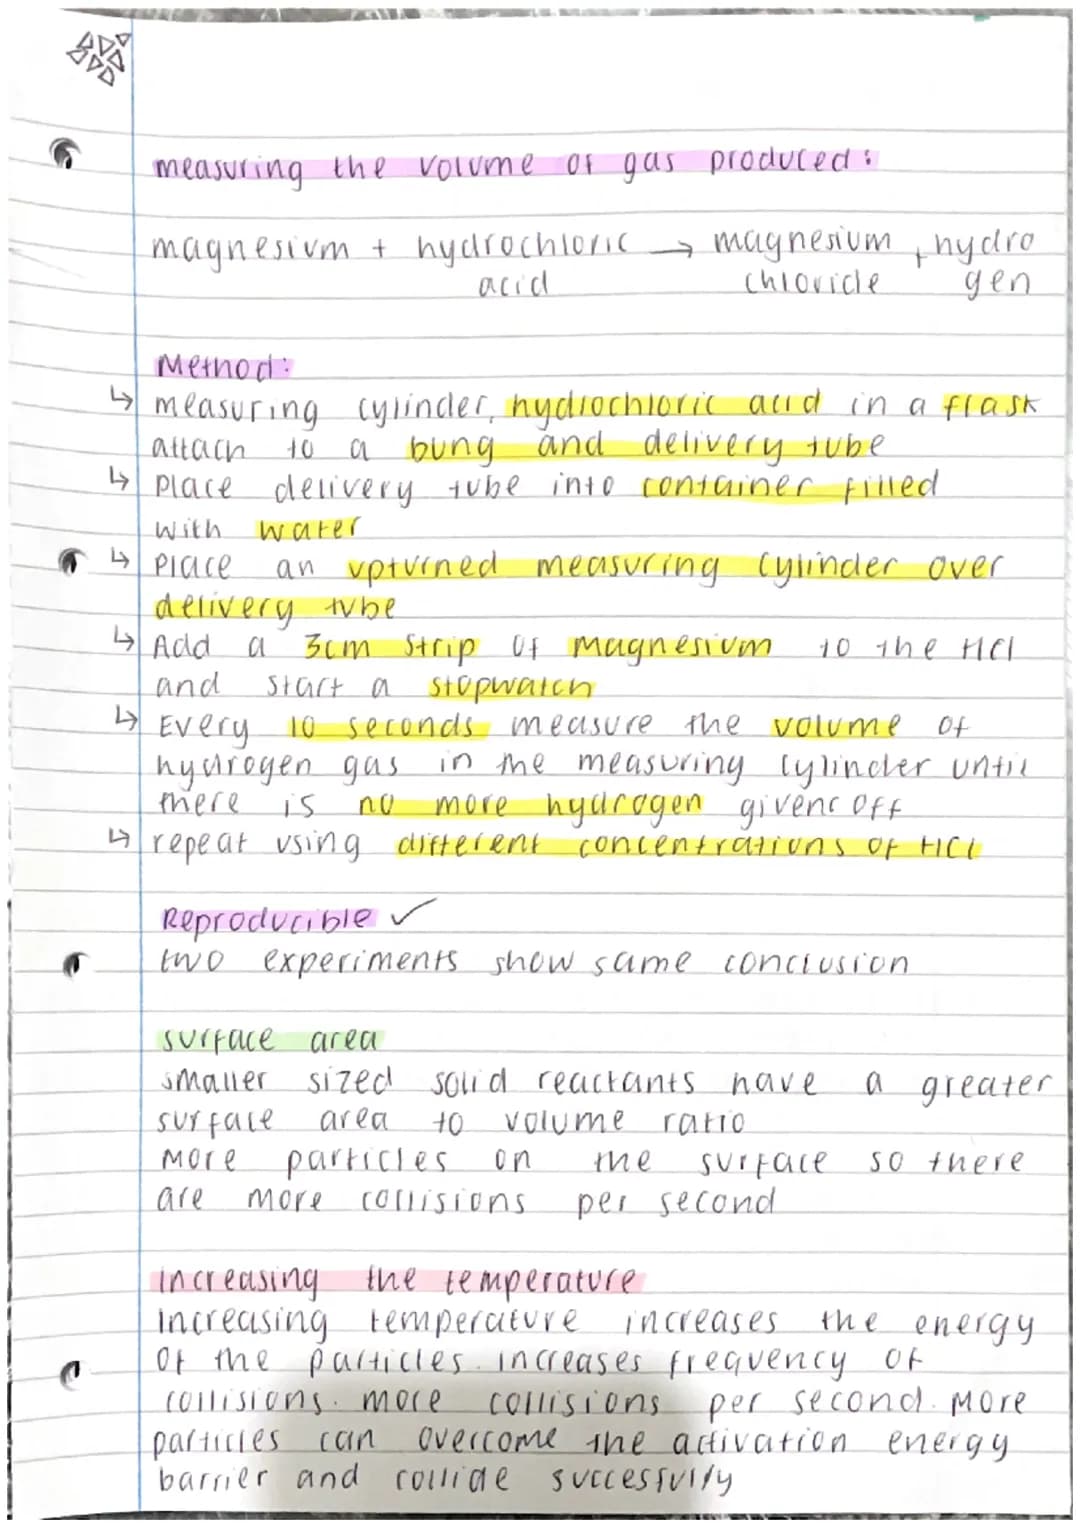 measuring the volume of gas produced:
magnesium + hydrochloric → magnesium + hydro
acid chloride gen
Method:
↳ measuring cylinder, hydrochloric acid in a flask
attach to a bung and delivery tube
↳ Place delivery tube into container filled
with water
↳ Place an upturned measuring cylinder over
delivery tube
↳ Add a 3cm strip of magnesium to the HCl
and start a stopwatch
↳ Every 10 seconds measure the volume of
hydrogen gas in the measuring cylinder until
there is no more hydrogen given off
↳ repeat using different concentrations of HCl
Reproducible ✓
two experiments show same conclusion
surface area
smaller sized solid reactants have a greater
surface area to volume ratio
More particles on the surface so there
are more collisions per second
increasing the temperature
increasing temperature increases the energy
of the particles. increases frequency of
collisions. more collisions per second. More
particles can overcome the activation energy
barrier and collide successfully